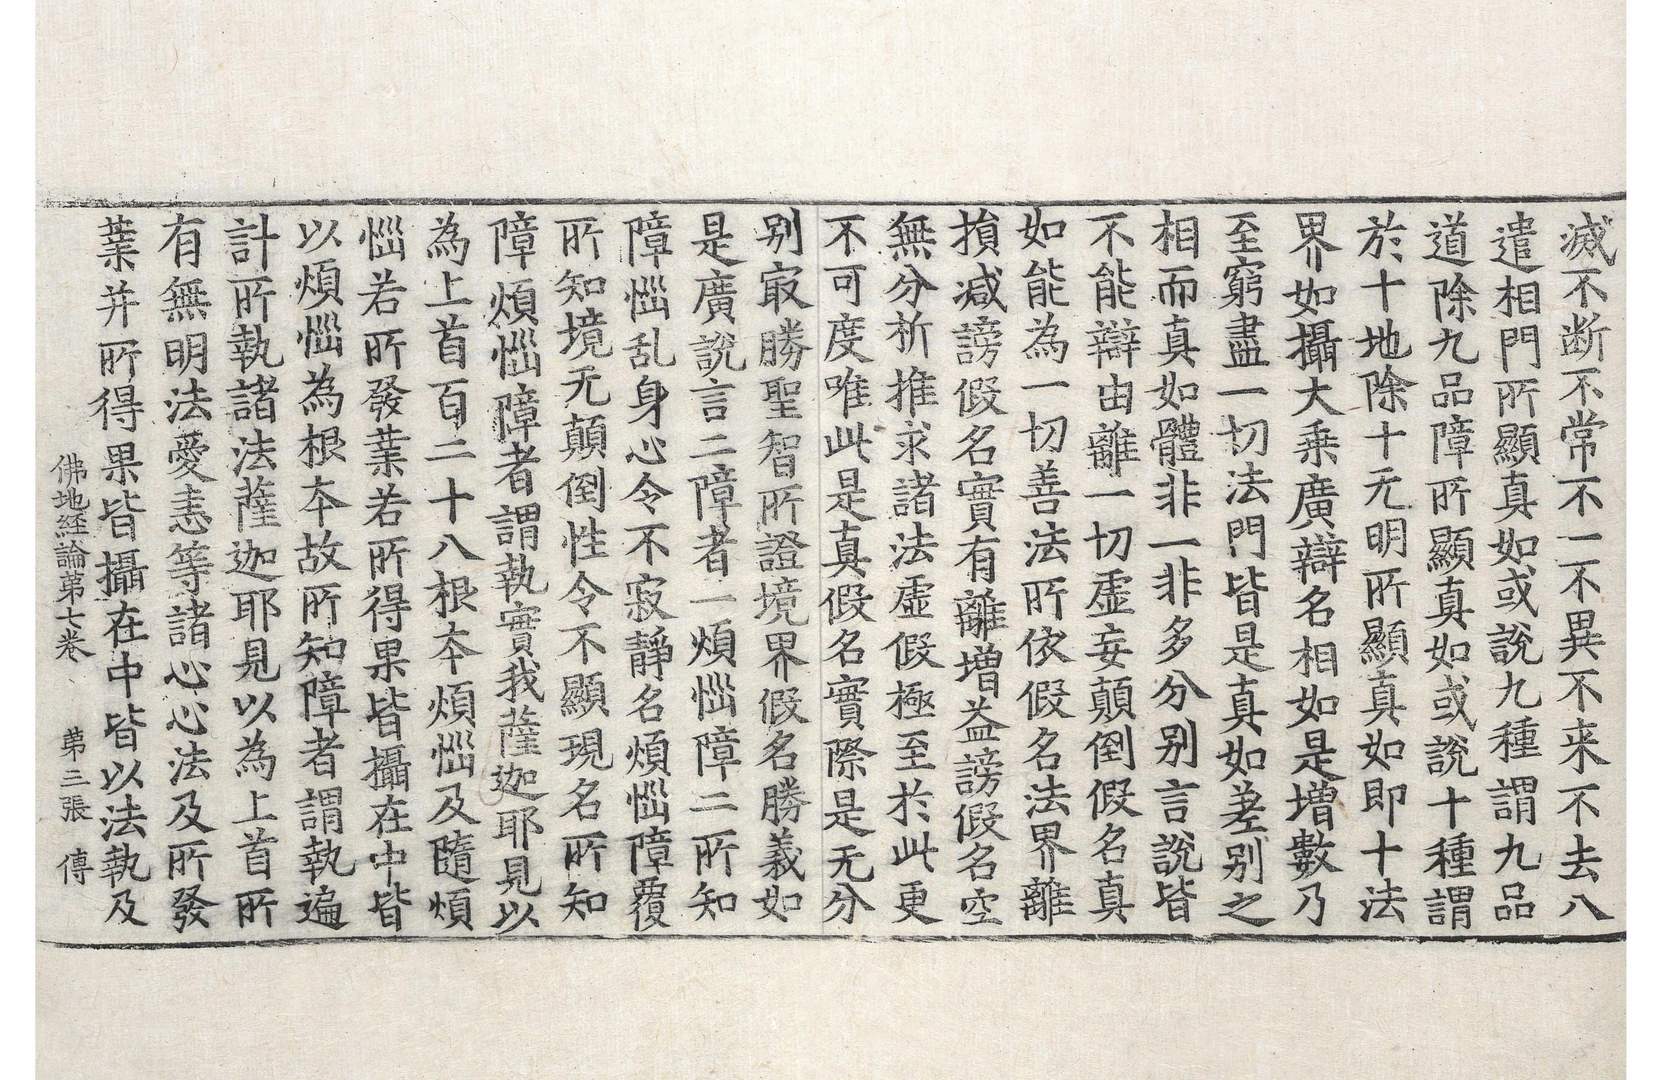 滅不断不常不一不異不来不去八
遣相門所顯真如或說九種謂九品
道除九品障所顯真如或說十種謂
於十地除十无明所顯真如即十法
界如攝大乗廣辯名相如是増數乃
至窮盡一切法門皆是真如差别之
相而真如體非一非多分别言說皆
不能辯由離一切虛妄顛倒假名真
如能為一切善法所依假名法界離
損减謗假名實有離増益謗假名空
無分析推求諸法虛假極至於此更
不可度唯此是真假名實際是无分
别冣勝聖智所證境界假名勝義如
是廣說言二障者一煩惱障二所知
障惱乱身心令不寂靜名煩惱障覆
所知境无顛倒性令不顯現名所知
障煩惱障者謂執實我薩迦耶見以
為上首百二十八根夲煩惱及隨煩
惱若所發業若所得果皆攝在中皆
以煩惱為根夲故所知障者謂執遍
計所執諸法薩迦耶見以為上首所
有無明法愛恚等諸心心法及所發
業并所得果皆攝在中皆以法執及
佛地経論第七卷 第三張 傅